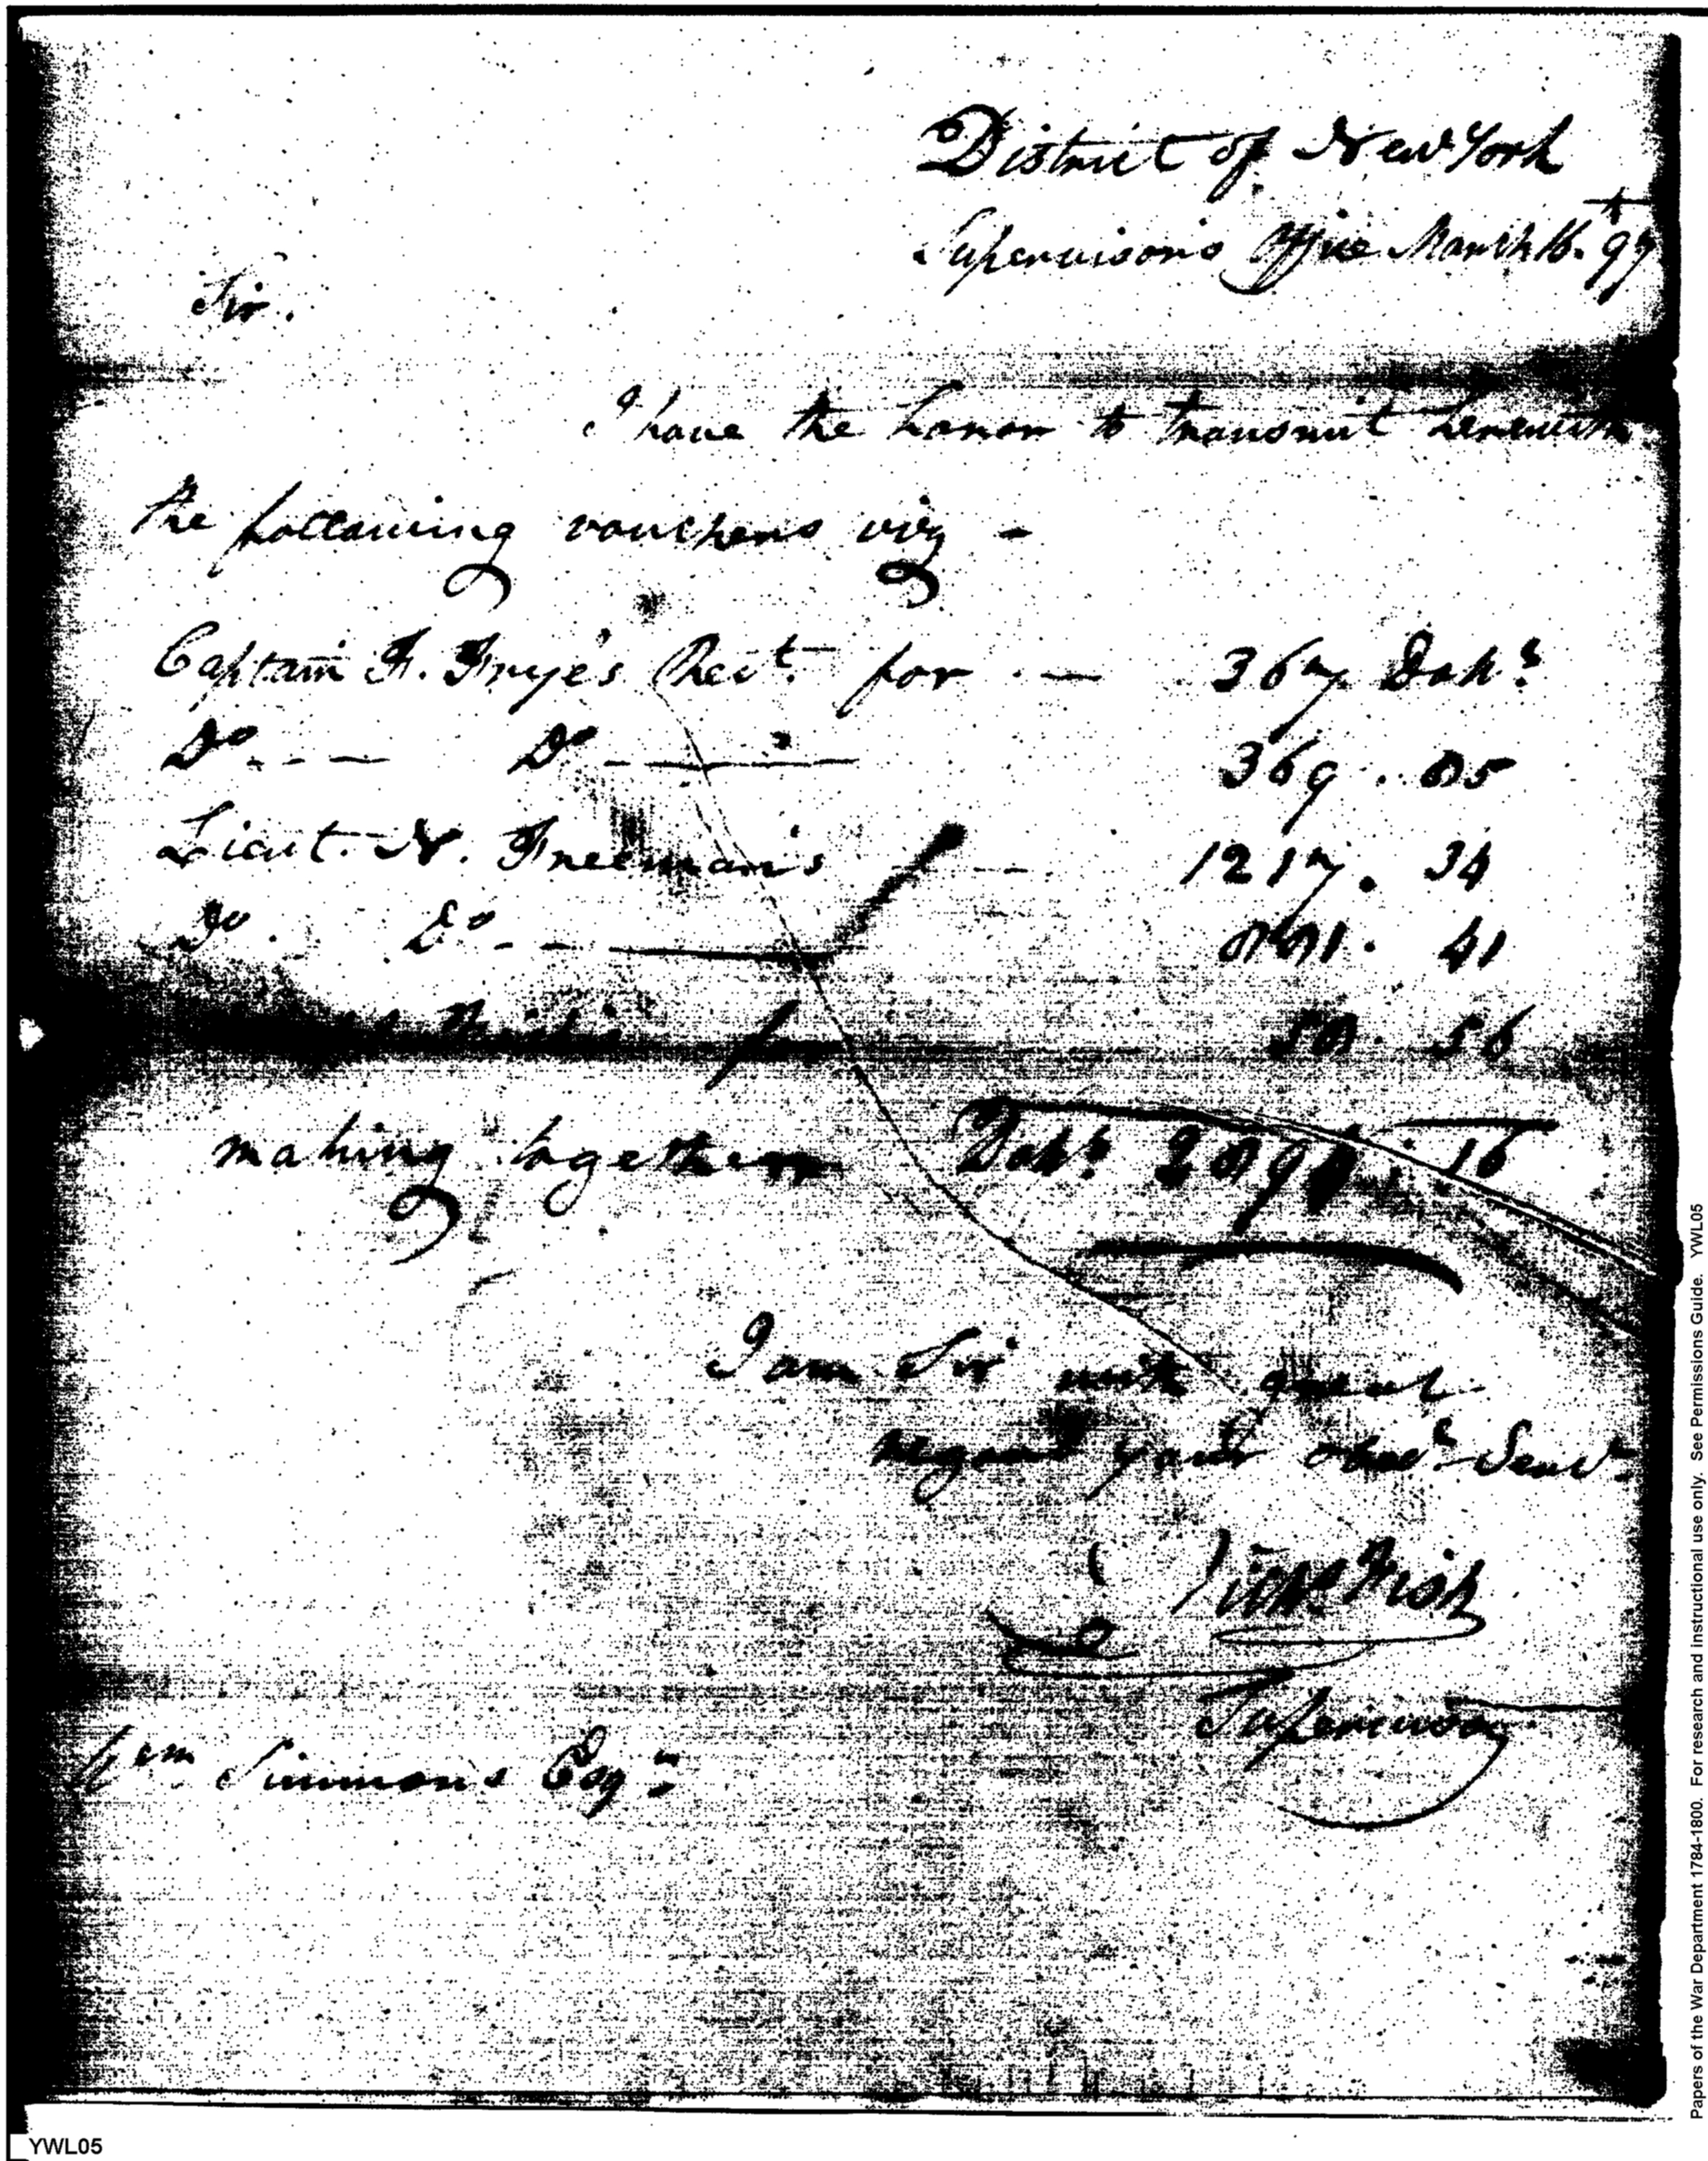 District of New York
Supervisor's Office March 16. 97
Sir.
I have the honor to transmit herewith
the following vouchers viz -
Captain F. Frye's Rect. for - 367 Dolls
Do - - - Do - 369 . 85
Lieut. N. Freeman's - - 1217 . 34
Do . Do - - 881 . 41
for 58 . 56
making together Dolls 2894 . 16
I am Sir with great
regard your obedt. Servt.
Nichs Fish
Supervisor
Wm Simmons Esqr
YWL05
Papers of the War Department 1784-1800. For research and instructional use only. See Permissions Guide. YWL05